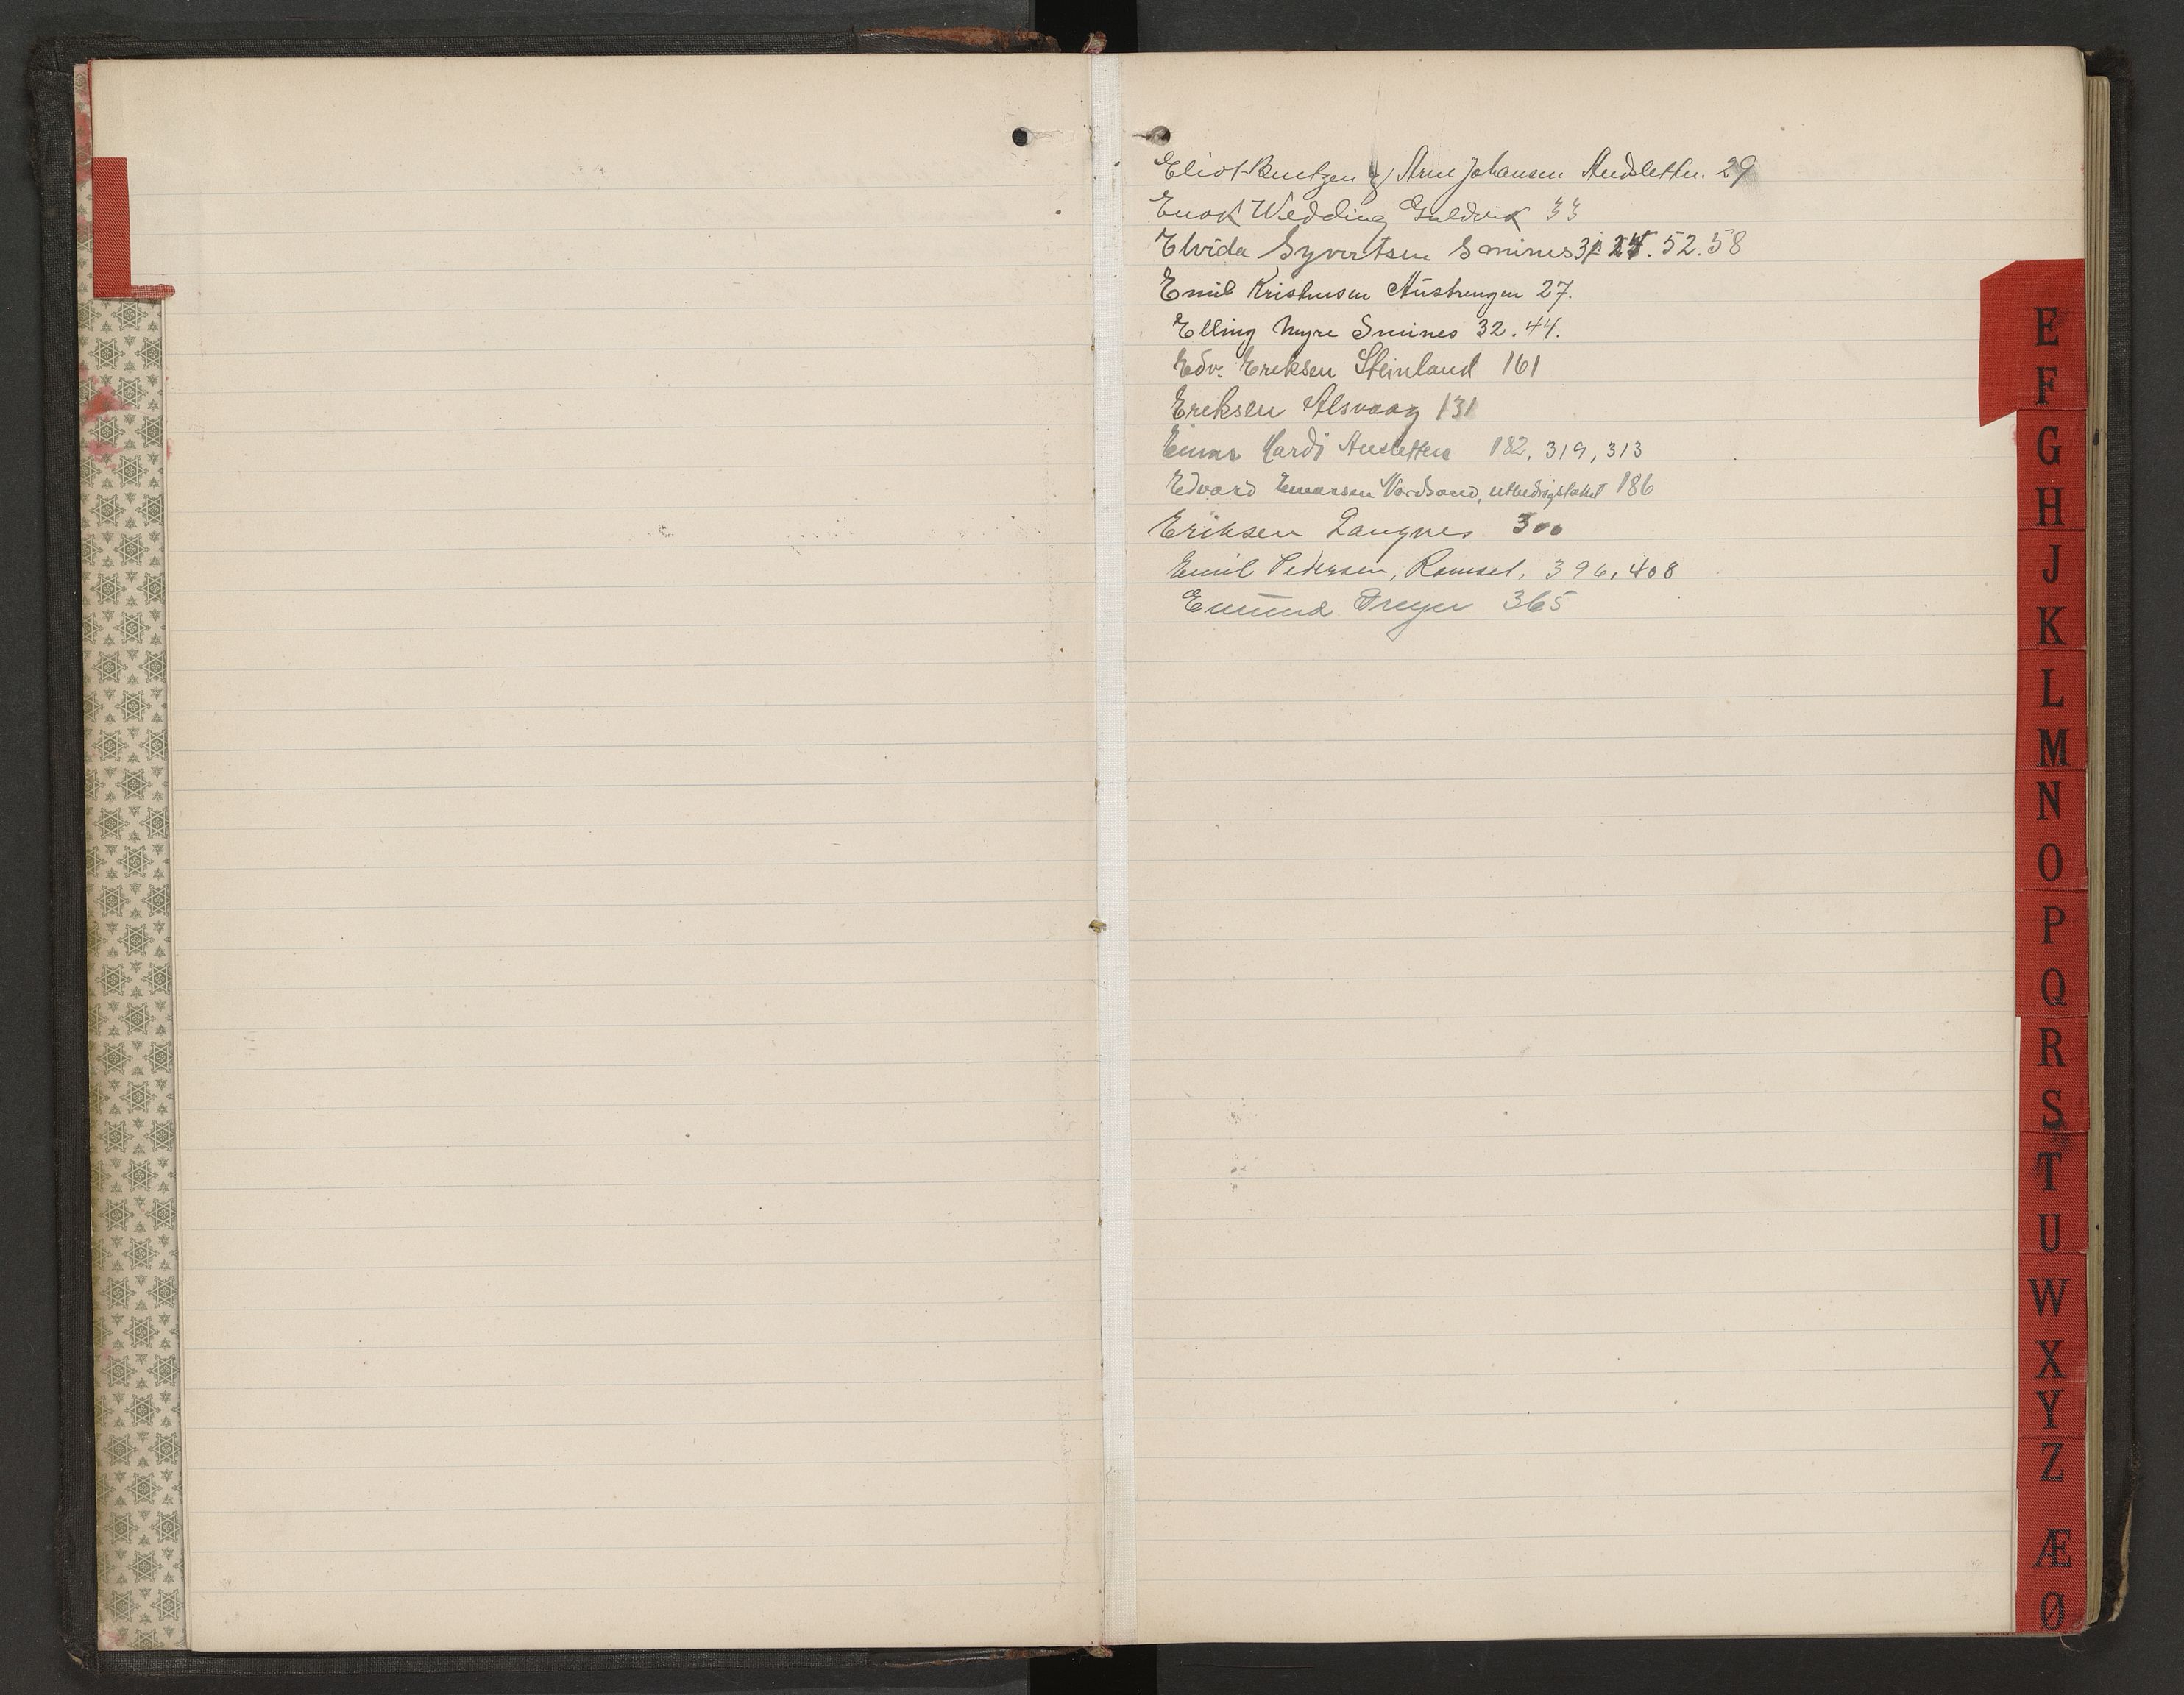 Eliot Bentzen g/ Arne Johansen Andsletten. 29
Enok Wedding Guldvik 33
Elvida Syvertsen Smines 31 25. 52. 58
Emil Kristensen Austrengen 27.
Elling Myre Smines 32. 44.
Edv. Eriksen Steinland 161
Eriksen Alsvaag 131
Einar Hardi 182, 319, 313
Edvard Einarsen 186
Eriksen Langnes 300
Emil Pedersen, Ramsel. 396, 408
Emund Dreyer 365
E
F
G
H
J
K
L
M
N
O
P
Q
R
S
T
U
W
X
Y
Z
Æ
Ø